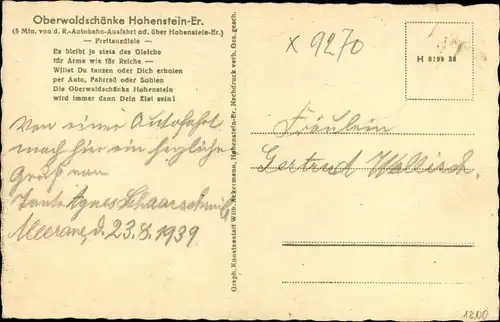 Oberwaldschänke Hohenstein-Er.
(5 Min. von d. R.-Autobahn-Ausfahrt od. über Hohenstein-Er.)
— Freitanzdiele —
Es bleibt ja stets das Gleiche
für Arme wie für Reiche —
Willst Du tanzen oder Dich erholen
per Auto, Fahrrad oder Sohlen
Die Oberwaldschänke Hohenstein
wird immer dann Dein Ziel sein!
Von einer Autofahrt
nach hier ein herzliche
Gruß von
Tante Agnes Schaarschmidt
Meerane, d. 23.8.1939
Graph. Kunstanstalt Wilh. Ackermann, Hohenstein-Er. Nachdruck verb. Ges. gesch.
x 9270
H 8199 38
Fräulein
Gertrud Wallisch.
1200